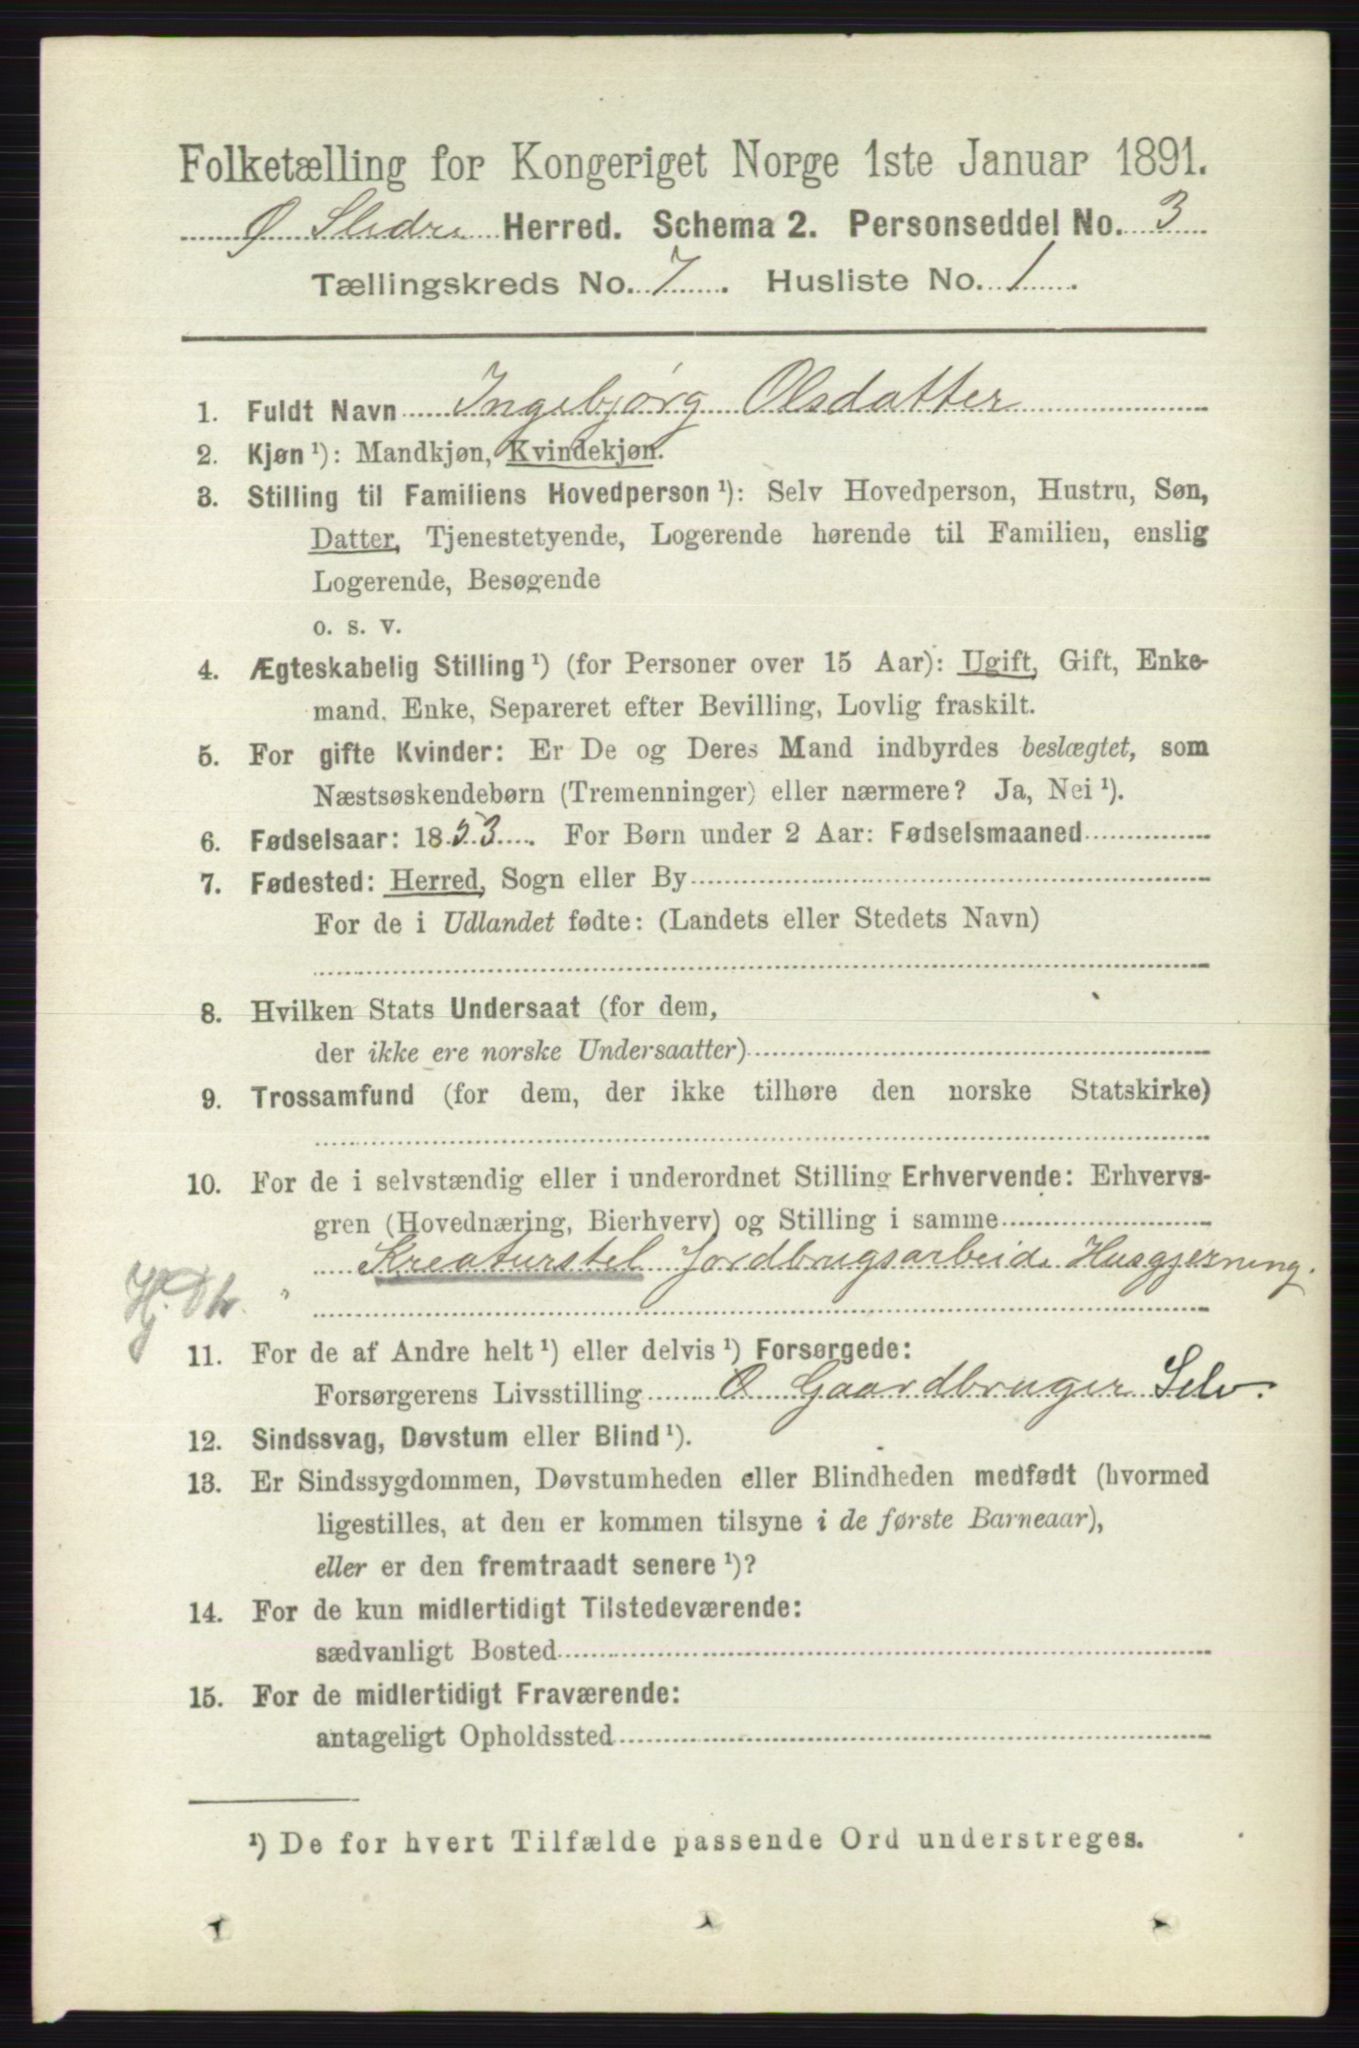 Folketælling for Kongeriget Norge 1ste Januar 1891.
Ø Slidre Herred. Schema 2. Personseddel No. 3
Tællingskreds No. 7. Husliste No. 1.
1. Fuldt Navn Ingebjørg Olsdatter
2. Kjøn ¹): Mandkjøn, Kvindekjøn.
3. Stilling til Familiens Hovedperson ¹): Selv Hovedperson, Hustru, Søn,
Datter, Tjenestetyende, Logerende hørende til Familien, enslig
Logerende, Besøgende
o. s. v.
4. Ægteskabelig Stilling ¹) (for Personer over 15 Aar): Ugift, Gift, Enke-
mand, Enke, Separeret efter Bevilling, Lovlig fraskilt.
5. For gifte Kvinder: Er De og Deres Mand indbyrdes beslægtet, som
Næstsøskendebørn (Tremenninger) eller nærmere? Ja, Nei ¹).
6. Fødselsaar: 1853. For Børn under 2 Aar: Fødselsmaaned
7. Fødested: Herred, Sogn eller By
For de i Udlandet fødte: (Landets eller Stedets Navn)
8. Hvilken Stats Undersaat (for dem,
der ikke ere norske Undersaatter)
9. Trossamfund (for dem, der ikke tilhøre den norske Statskirke)
10. For de i selvstændig eller i underordnet Stilling Erhvervende: Erhvervs-
gren (Hovednæring, Bierhverv) og Stilling i samme
Kreaturstel Jordbrugsarbeide Husgjerning.
11. For de af Andre helt ¹) eller delvis ¹) Forsørgede:
Forsørgerens Livsstilling Gaardbruger Selv.
12. Sindssvag, Døvstum eller Blind ¹).
13. Er Sindssygdommen, Døvstumheden eller Blindheden medfødt (hvormed
ligestilles, at den er kommen tilsyne i de første Barneaar),
eller er den fremtraadt senere ¹)?
14. For de kun midlertidigt Tilstedeværende:
sædvanligt Bosted
15. For de midlertidigt Fraværende:
antageligt Opholdssted
¹) De for hvert Tilfælde passende Ord understreges.